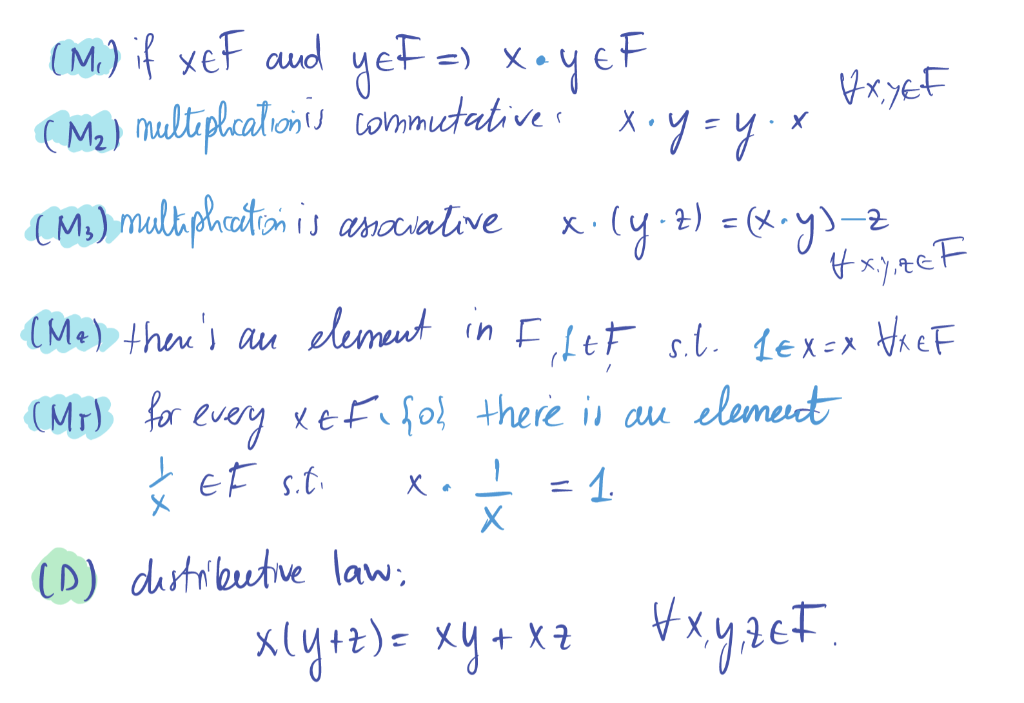 (M₁) if x∈F and y∈F => x·y∈F
(M₂) multiplication is commutative: x·y = y·x ∀x,y∈F
(M₃) multiplication is associative x·(y·z) = (x·y)–z
∀x,y,z∈F
(M₄) there's an element in F, 1∈F, s.t. 1∈x=x ∀x∈F
(M5) for every x∈F\{0} there is an element
1/x ∈F s.t. x · 1/x = 1.
(D) distributive law:
x(y+z) = xy + xz ∀x,y,z∈F.